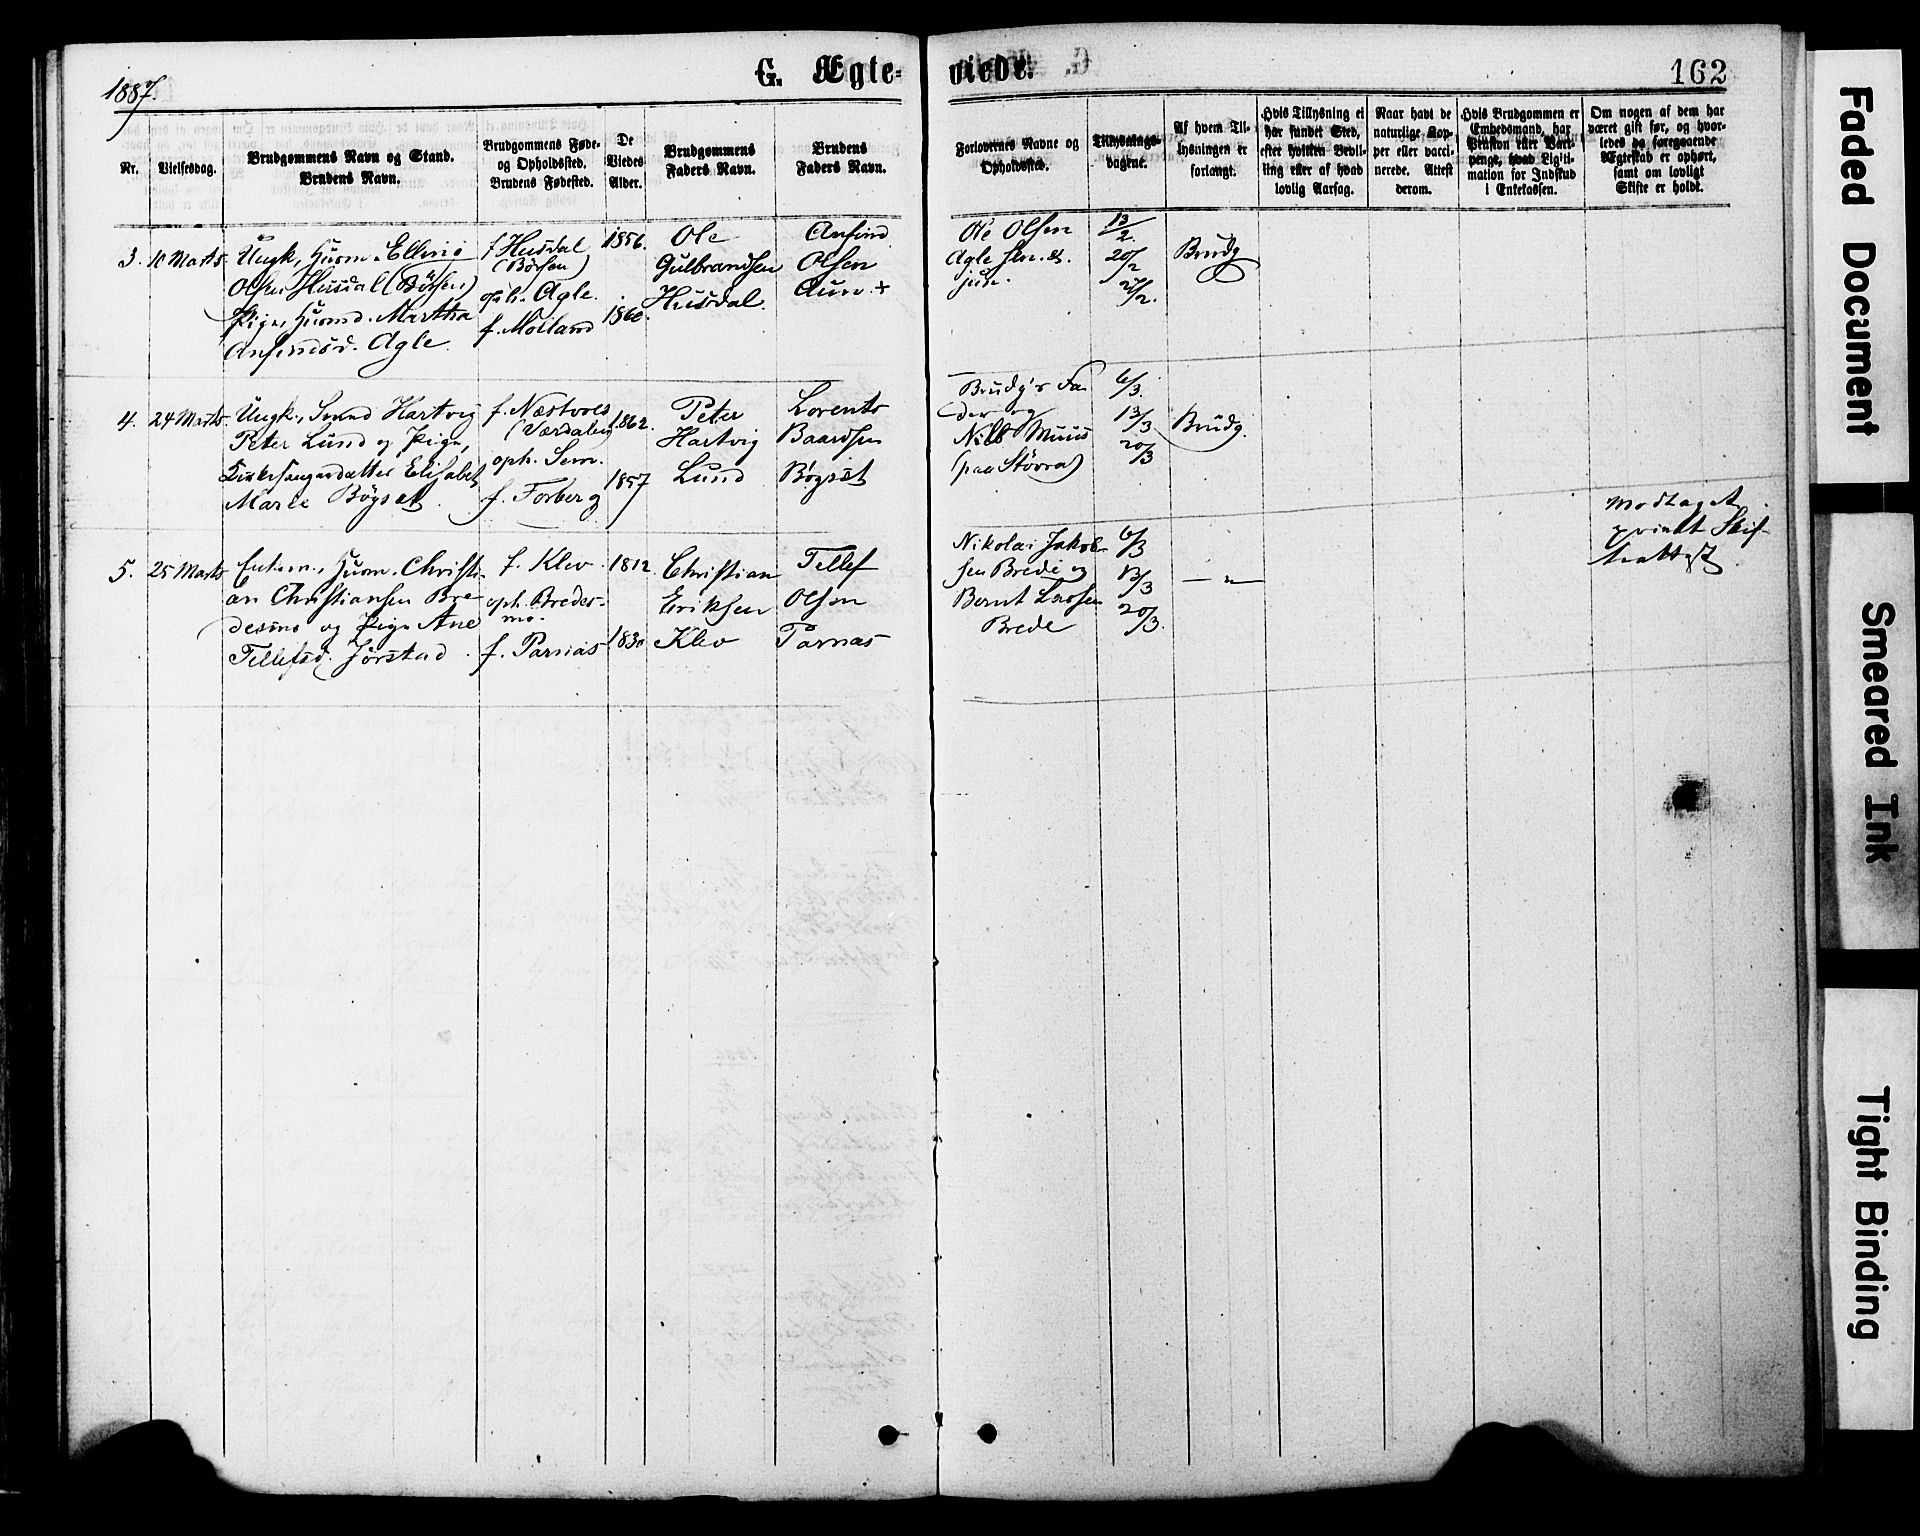 1887.
G. Ægte-
viede.
162
Nr.
Vielsesdag.
Brudgommens Navn og Stand.
Brudens Navn.
Brudgommens Føde-
og Opholdssted.
Brudens Fødested.
De
Viedes
Alder.
Brudgommens
Faders Navn.
Brudens
Faders Navn.
Forlovernes Navne og
Opholdssted.
Tillysnings-
dagene.
Af hvem Til-
lysningen er
forlangt.
Hvis Tillysning ei
har fundet Sted,
efter hvilken Bevil-
ling eller af hvad
lovlig Aarsag.
Naar havt de
naturlige Kop-
per eller vacci-
nerede. Attest
derom.
Hvis Brudgommen er
Embedsmand, har
Pension eller Vart-
penge, hvad Ligiti-
mation for Indskud
i Enkekassen.
Om nogen af dem har
været gift før, og hvor-
ledes da foregaaende
Ægteskab er ophørt,
samt om lovligt
Skifte er holdt.
3. 10 Marts
Ungk., Husm. Elling
Olsen Husdal (Börsen)
Pige, Husmd. Martha
Anfindsd. Agle.
f. Husdal
(Börsen)
oph. Agle.
f. Moiland
1856.
1860.
Ole
Gulbrandsen
Husdal.
Anfind
Olsen
Aun. +
Ole Olsen
Agle sen. &
jun.
13/2.
20/2
27/2.
Brudg
4. 24 Marts.
Ungk., Svend Hartvig
Peter Lund og Pige,
Kirkesangerdatter Elisabet
Marie Bøgset.
f. Næstvold
(Værdalen)
oph. Sem.
f. Forberg
1862.
1857
Peter
Hartvig
Lund
Lorents
Baardsen
Bøgset
Brudg's Fa-
der og
Nils Muus
(paa Störra)
6/3.
13/3
20/3
Brudg.
5. 25 Marts
Enkem., Husm. Christi-
an Christiansen Bre-
desmo og Pige Ane
Tellefsd. Jörstad.
f. Klev
oph. Bredes-
mo.
f. Parnas
1812
1830
Christian
Eriksen
Klev
Tellef
Olsen
Parnas
Nikolai Jakob-
sen Brede og
Bernt Larsen
Brede
6/3
13/3
20/3.
— " —
Modtaget
privat Skif-
teattest.
Faded Document
Smeared Ink
Tight Binding